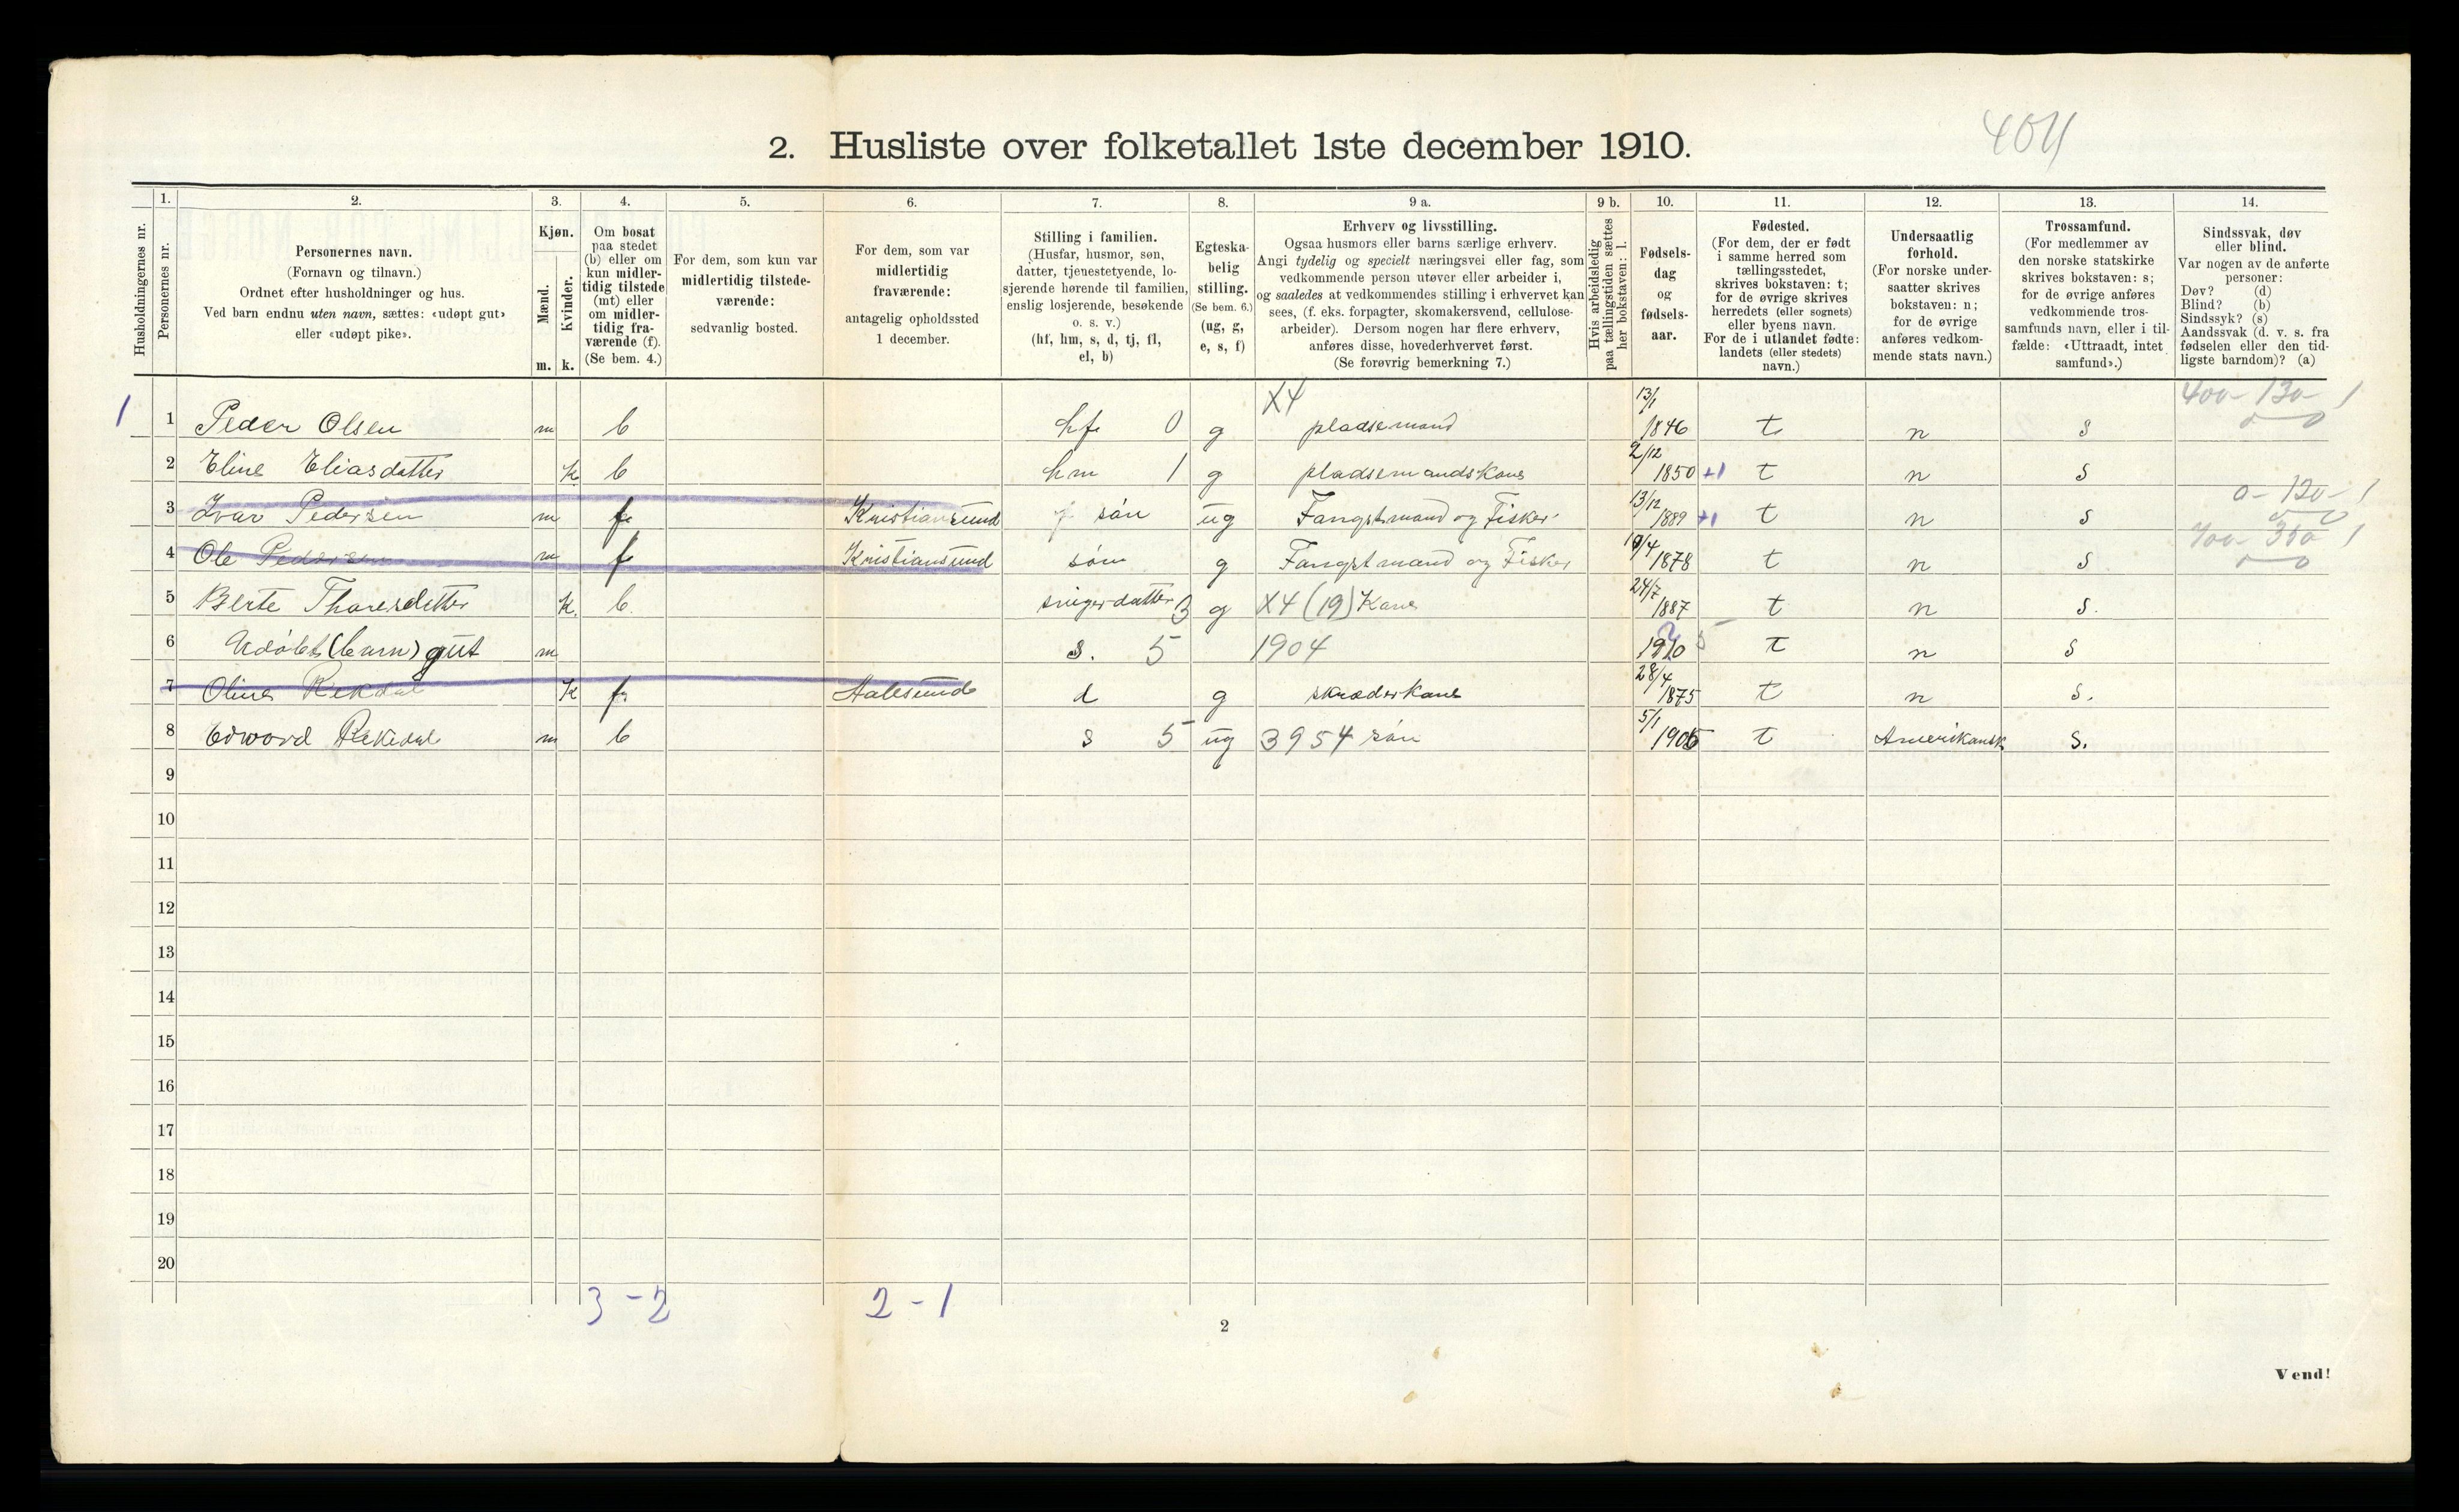 404
2. Husliste over folketallet 1ste december 1910.
Husholdningernes nr.
1. Personernes nr.
2. Personernes navn. (Fornavn og tilnavn.) Ordnet efter husholdninger og hus. Ved barn endnu uten navn, sættes: «udøpt gut» eller «udøpt pike».
3. Kjøn. Mænd. m. Kvinder. k.
4. Om bosat paa stedet (b) eller om kun midlertidig tilstede (mt) eller om midlertidig fraværende (f). (Se bem. 4.)
5. For dem, som kun var midlertidig tilstedeværende: sedvanlig bosted.
6. For dem, som var midlertidig fraværende: antagelig opholdssted 1 december.
7. Stilling i familien. (Husfar, husmor, søn, datter, tjenestetyende, losjerende hørende til familien, enslig losjerende, besøkende o. s. v.) (hf, hm, s, d, tj, fl, el, b)
8. Egteskabelig stilling. (Se bem. 6.) (ug, g, e, s, f)
9 a. Erhverv og livsstilling. Ogsaa husmors eller barns særlige erhverv. Angi tydelig og specielt næringsvei eller fag, som vedkommende person utøver eller arbeider i, og saaledes at vedkommendes stilling i erhvervet kan sees, (f. eks. forpagter, skomakersvend, cellulosearbeider). Dersom nogen har flere erhverv, anføres disse, hovederhvervet først. (Se forøvrig bemerkning 7.)
9 b. Hvis arbeidsledig paa tællingstiden sættes her bokstaven: l.
10. Fødselsdag og fødselsaar.
11. Fødested. (For dem, der er født i samme herred som tællingsstedet, skrives bokstaven: t; for de øvrige skrives herredets (eller sognets) eller byens navn. For de i utlandet fødte: landets (eller stedets) navn.)
12. Undersaatlig forhold. (For norske undersaatter skrives bokstaven: n; for de øvrige anføres vedkommende stats navn.)
13. Trossamfund. (For medlemmer av den norske statskirke skrives bokstaven: s; for de øvrige anføres vedkommende trossamfunds navn, eller i tilfælde: «Uttraadt, intet samfund».)
14. Sindssvak, døv eller blind. Var nogen av de anførte personer: Døv? (d) Blind? (b) Sindssyk? (s) Aandssvak (d. v. s. fra fødselen eller den tidligste barndom)? (a)
1 1 Peder Olsen m b hf 0 g X4 pladsemand 13/1 1846 t n s 400- 130- 1
2 Eline Eliasdatter k b hm 1 g pladsemandskone 2/12 1850 +1 t n s
3 Ivar Pedersen m f Kristiansund søn ug Fangstmand og Fisker 13/12 1889 +1 t n s 0- 120- 1
4 Ole Pedersen m f Kristiansund søn g Fangstmand og Fisker 10/4 1878 t n s 400- 350 1
5 Berte Thoresdatter k. b. svigerdatter 3 g X4 (19) Kone 24/7 1887 t n s.
6 Udøbt (barn) gut m s. 5 1904 1910 t n s
7 Oline Rekdal k f Aalesund d g skræderkone 28/4 1875 t n s.
8 Edward Rekedal m b s 5 ug 3954 søn 5/1 1905 t Amerikansk s.
9
10
11
12
13
14
15
16
17
18
19
20
3 - 2 2 - 1
2
Vend!